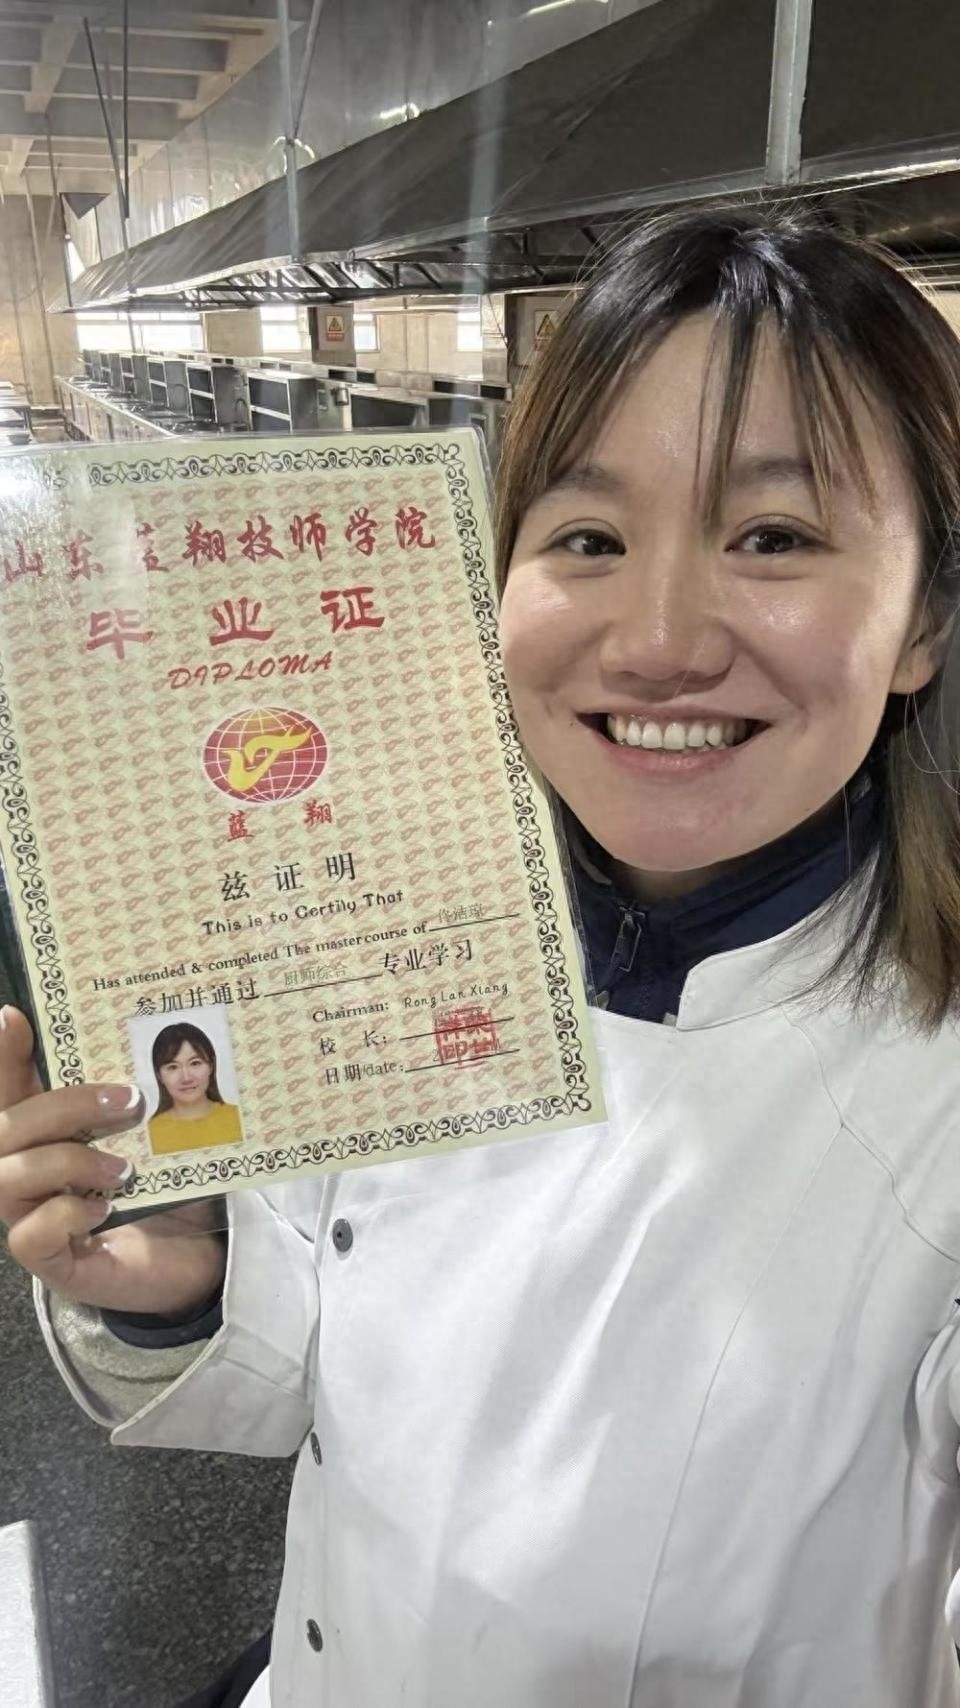 山东蓝翔技师学院
毕业证
DIPLOMA
蓝翔
兹证明
This is to Certily That
Has attended & completed The master course of 佟洁琼
参加并通过 厨师综合 专业学习
Chairman: Rong Lan Xiang
校长:
日期/date: